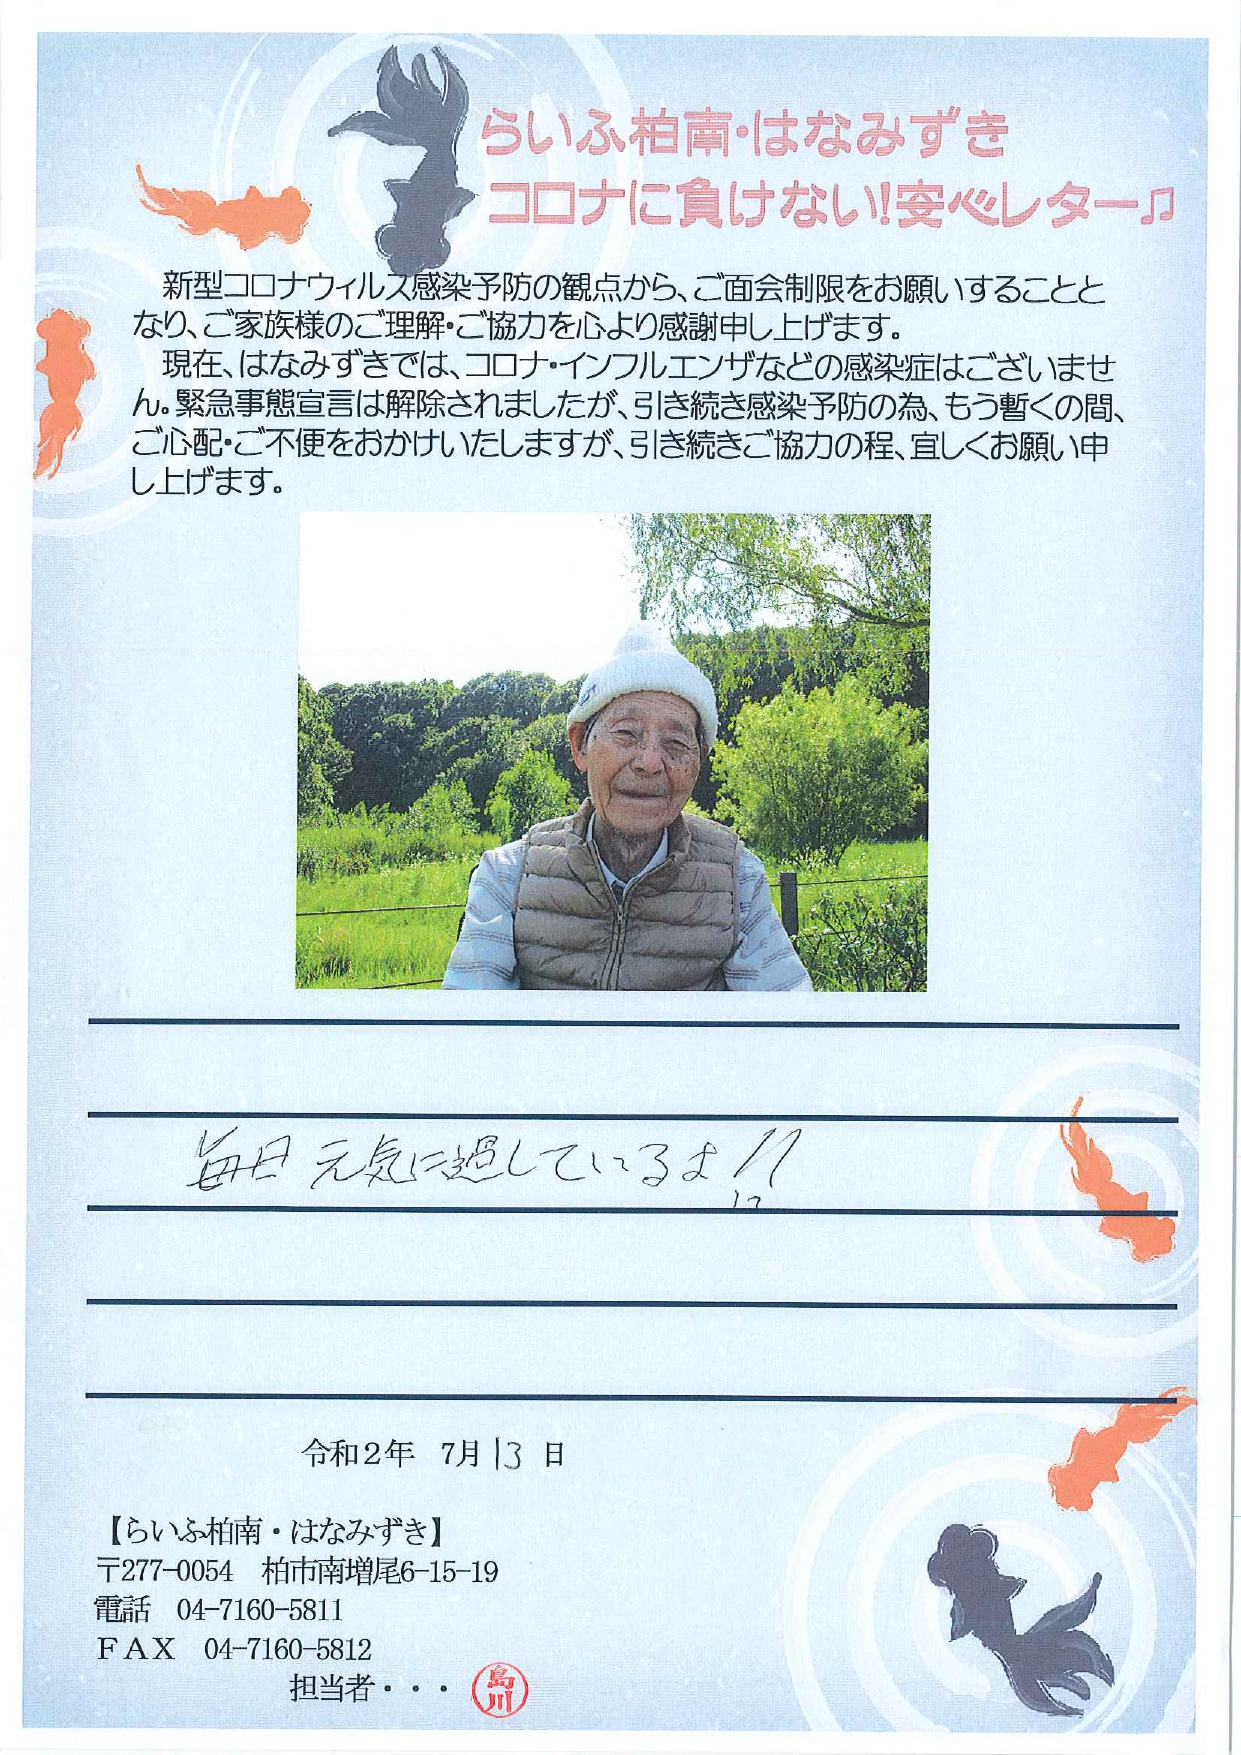 らいふ柏南・はなみずき
コロナに負けない!安心レター♫
新型コロナウィルス感染予防の観点から、ご面会制限をお願いすることと
なり、ご家族様のご理解・ご協力を心より感謝申し上げます。
現在、はなみずきでは、コロナ・インフルエンザなどの感染症はございませ
ん。緊急事態宣言は解除されましたが、引き続き感染予防の為、もう暫くの間、
ご心配・ご不便をおかけいたしますが、引き続きご協力の程、宜しくお願い申
し上げます。
毎日 元気に過しているよ!!
令和2年 7月13日
【らいふ柏南・はなみずき】
〒277-0054 柏市南増尾6-15-19
電話 04-7160-5811
FAX 04-7160-5812
担当者・・・ 島川